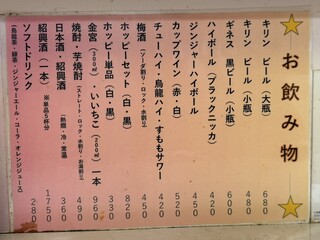 お飲み物
キリン ビール(大瓶) 680
キリン ビール(小瓶) 480
ギネス 黒ビール(小瓶) 600
ハイボール(ブラックニッカ) 420
ジンジャーハイボール 450
カップワイン(赤・白) 520
チューハイ・烏龍ハイ・すももサワー 420
梅酒(ソーダ割り・ロック・水割り) 450
ホッピーセット(白・黒) 820
ホッピー単品(白・黒) 330
金宮(300ml)・いいちこ(200ml)一本 960
焼酎・芋焼酎(ストレート・ロック・水割り・お湯割り) 490
日本酒・紹興酒(熱燗・冷・常温) 360
紹興酒(一本)※単品5杯分 1750
ソフトドリンク 280
(烏龍茶・緑茶・ジンジャーエール・コーラ・オレンジジュース)